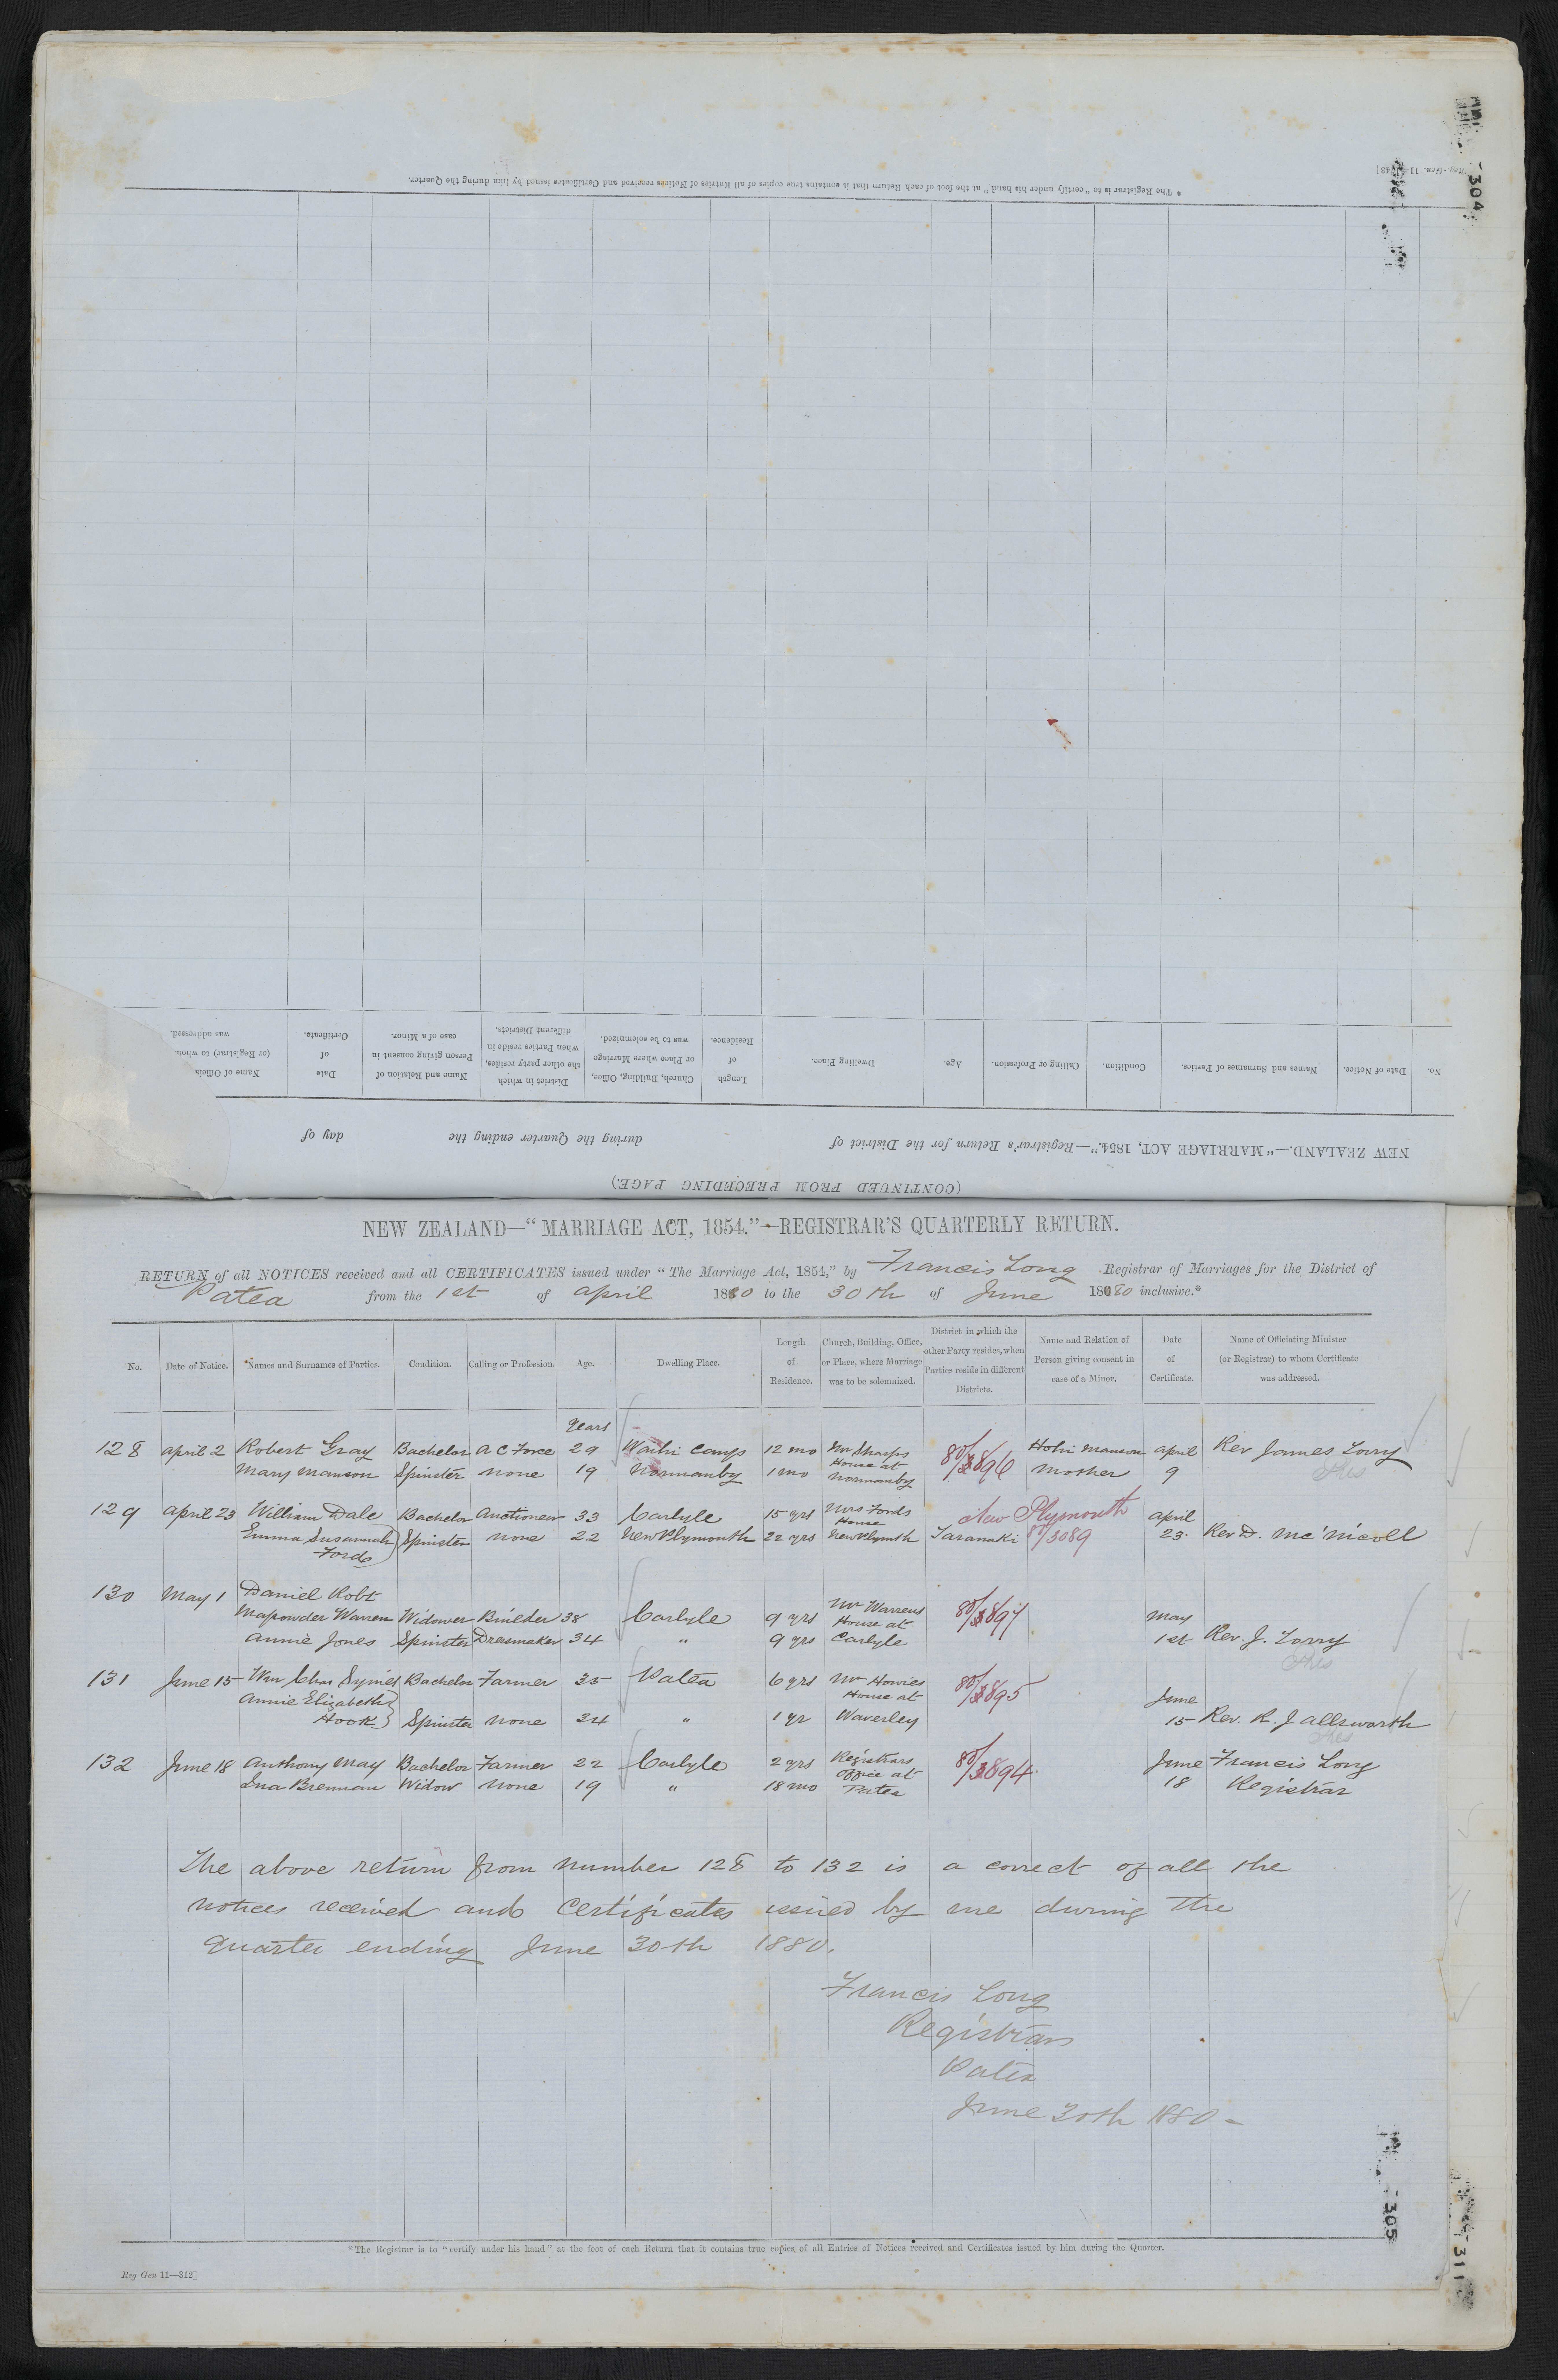 * The Registrar is to "certify under his hand" at the foot of each Return that it contains true copies of all Entries of Notices received and Certificates issued by him during the Quarter.
304
No. Date of Notice. Names and Surnames of Parties. Condition. Calling or Profession. Age. Dwelling Place. Length of Residence. Church, Building, Office, or Place where Marriage was to be solemnized. District in which the other party resides, when Parties reside in different Districts. Name and Relation of Person giving consent in case of a Minor. Date of Certificate. Name of (or Registrar) to was addressed.
NEW ZEALAND.—"MARRIAGE ACT, 1854."—Registrar's Return for the District of during the Quarter ending the day of
(CONTINUED FROM PRECEDING PAGE.)
NEW ZEALAND—"MARRIAGE ACT, 1854."—REGISTRAR'S QUARTERLY RETURN.
RETURN of all NOTICES received and all CERTIFICATES issued under "The Marriage Act, 1854," by Francis Long Registrar of Marriages for the District of
Patea from the 1st of April 1880 to the 30th of June 1880 inclusive.*
No. Date of Notice. Names and Surnames of Parties. Condition. Calling or Profession. Age. Dwelling Place. Length of Residence. Church, Building, Office, or Place, where Marriage was to be solemnized. District in which the other Party resides, when Parties reside in different Districts. Name and Relation of Person giving consent in case of a Minor. Date of Certificate. Name of Officiating Minister (or Registrar) to whom Certificate was addressed.
Years
128 April 2 Robert Gray Bachelor A C Force 29 Waihi Camp 12 mo Mr Sharps House at Normanby 80/896 Manson April Rev James Torry
Mary Manson Spinster None 19 Normanby 1 mo Mother 9
129 April 23 William Dale Bachelor Auctioneer 33 Carlyle 15 yrs Mrs Fords House New Plymouth April
Emma Susannah Ford Spinster None 22 New Plymouth 22 yrs New Plymth Taranaki 80/3089 23. Rev D. Mc'Nicoll
130 May 1 Daniel Robt
Mapowder Warren Widower Builder 38 Carlyle 9 yrs Mr Warrens House at Carlyle 80/897 May
Annie Jones Spinster Dressmaker 34 " 9 yrs 1st Rev. J. Torry
131 June 15 Wm Chas Symes Bachelor Farmer 35 Patea 6 yrs Mr Howies House at 80/895 June
Annie Elizabeth
Hook Spinster None 24 " 1 yr Waverley 15 Rev. R. J Allsworth
132 June 18 Anthony May Bachelor Farmer 22 Carlyle 2 yrs Registrars Office at Patea 80/894 June Francis Long
Ina Brennan Widow None 19 " 18 mo 18 Registrar
The above return from number 128 to 132 is a correct of all the
notices received and Certificates issued by me during the
Quarter ending June 30th 1880.
Francis Long
Registrar
Patea
June 30th 1880
305
311
* The Registrar is to "certify under his hand" at the foot of each Return that it contains true copies of all Entries of Notices received and Certificates issued by him during the Quarter.
Reg Gen 11—312]